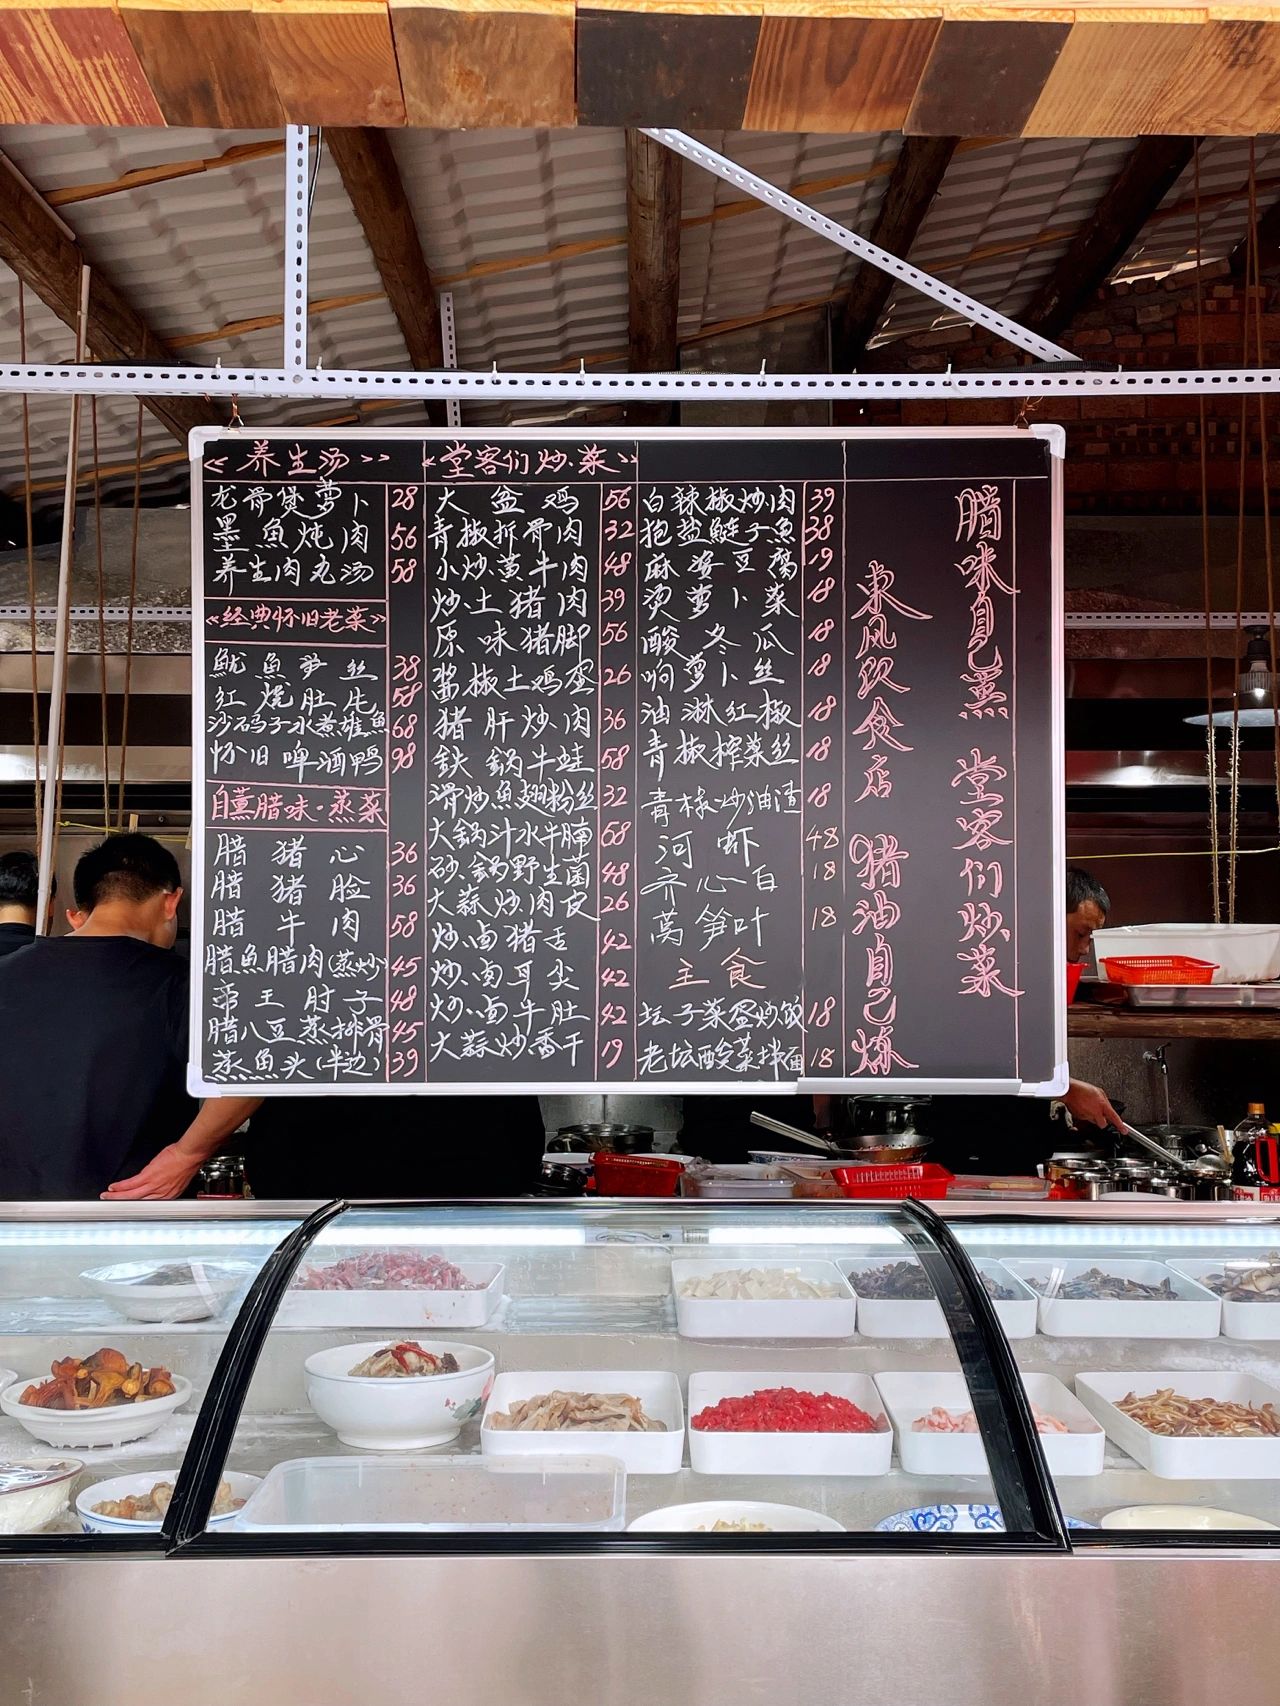 《养生汤》
龙骨煲萝卜 28
墨魚炖肉 56
养生肉丸汤 58
《经典怀旧老菜》
魷魚笋丝 38
红烧肚片 58
沙石码子水煮雄魚 68
怀旧啤酒鸭 98
自薰腊味·蒸菜
腊猪心 36
腊猪脸 36
腊牛肉 58
腊魚腊肉(蒸炒) 45
帝王肘子 48
腊八豆蒸排骨 45
蒸魚头(半边) 39
《堂客们炒菜》
大盆鸡 56
青椒拆骨肉 32
小炒黄牛肉 48
炒土猪肉 39
原味猪脚 56
酱椒土鸡蛋 26
猪肝炒肉 36
鉄鍋牛蛙 58
滑炒魚翅粉丝 32
大鍋汁水牛腩 68
砂鍋野生菌 48
大蒜炒肉皮 26
炒卤猪舌 42
炒卤耳尖 42
炒卤牛肚 42
大蒜炒香干 19
白辣椒炒肉 39
抱盐鲢子魚 38
麻婆豆腐 19
烫萝卜菜 18
酸冬瓜 18
响萝卜丝 18
油淋红椒 18
青椒榨菜丝 18
青椒炒油渣 18
河虾 48
齐心白 18
莴笋叶 18
主食
坛子菜蛋炒饭 18
老坛酸菜拌面 18
腊味自己薰 堂客们炒菜
東风饮食店 猪油自己煉